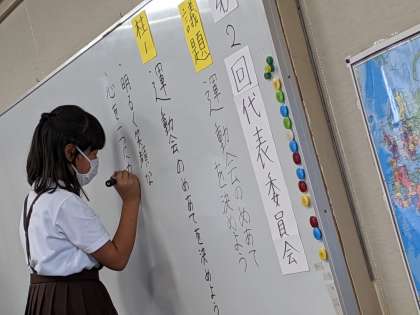 第2回代表委員会
運動会のめあてを決めよう
議題
運動会のめあてを決めよう
柱1
・明るく元気な
心を一つに